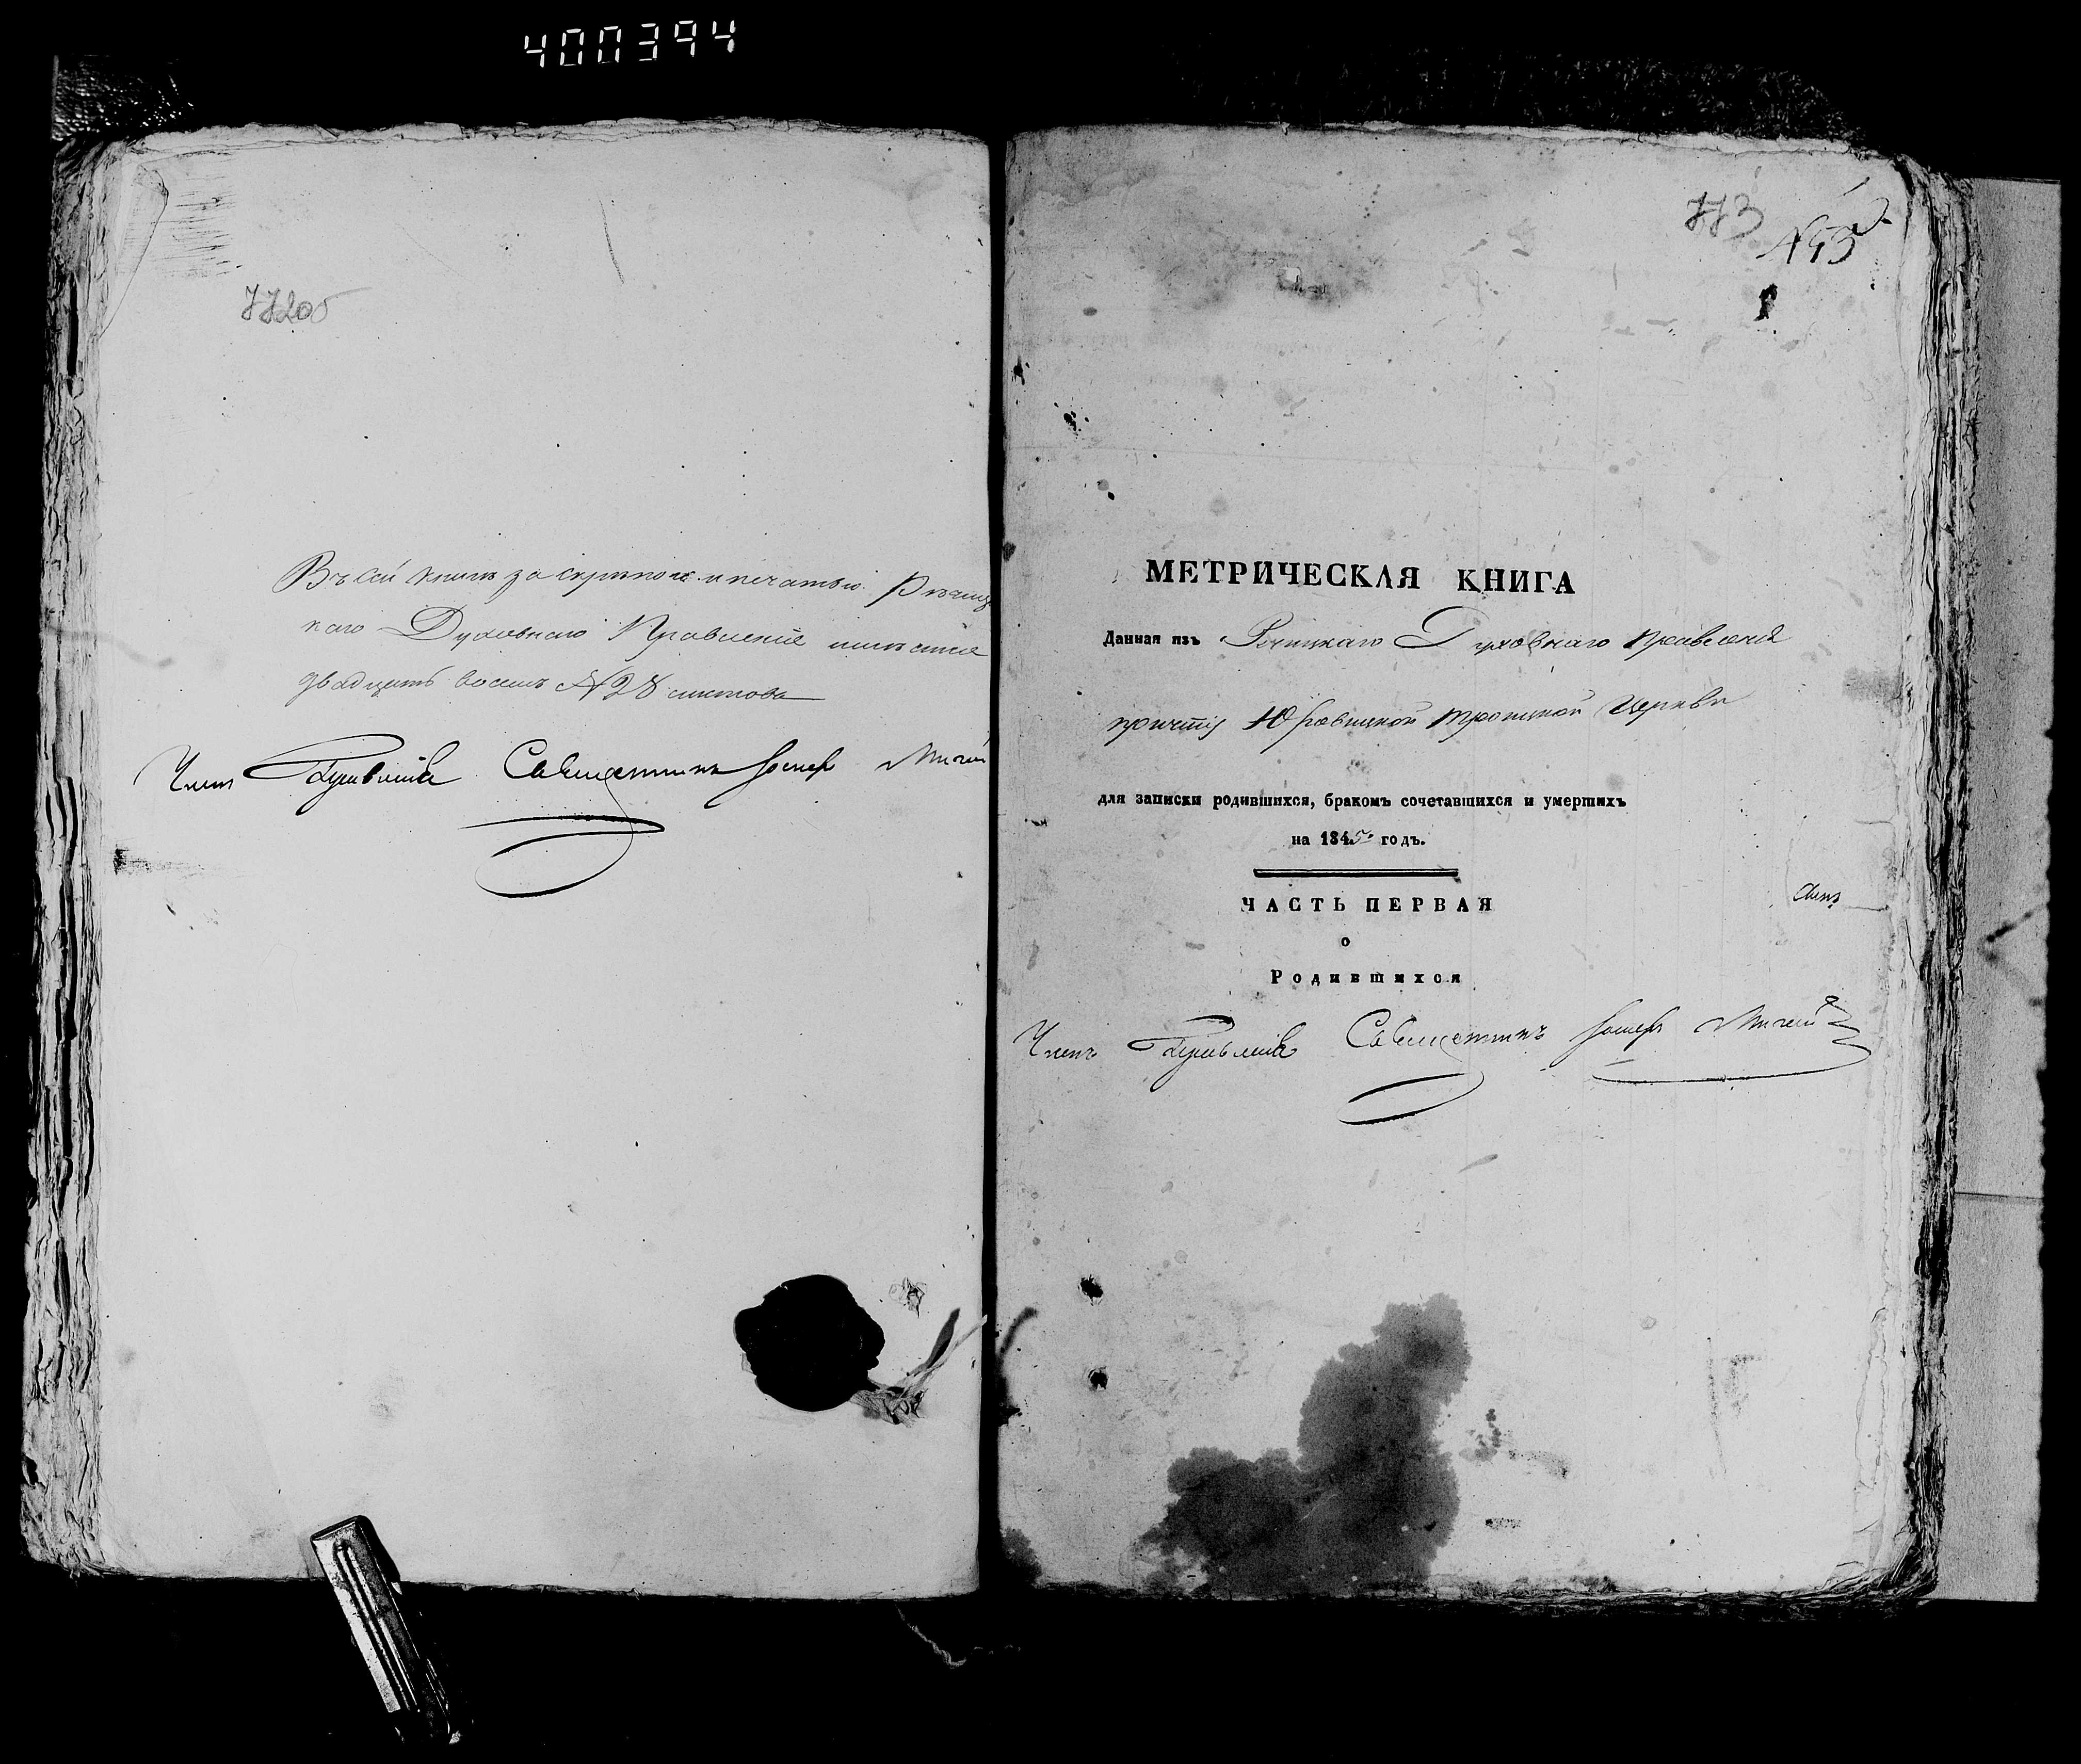 400394
772об
Въ сей книгѣ за скрѣпою и печатью Рѣчиц
каго Духовнаго Правленія имѣется
двадцать восемь № 28 листовъ
Членъ Правленія Священникъ
773
№ 43
МЕТРИЧЕСКАЯ КНИГА
Данная изъ Речицкаго Духовнаго Правленія
причту Юровицкой Троицкой Церкви
для записки родившихся, бракомъ сочетавшихся и умершихъ
на 1845 годъ.
ЧАСТЬ ПЕРВАЯ
о
Родившихся
Членъ Правленія Священникъ